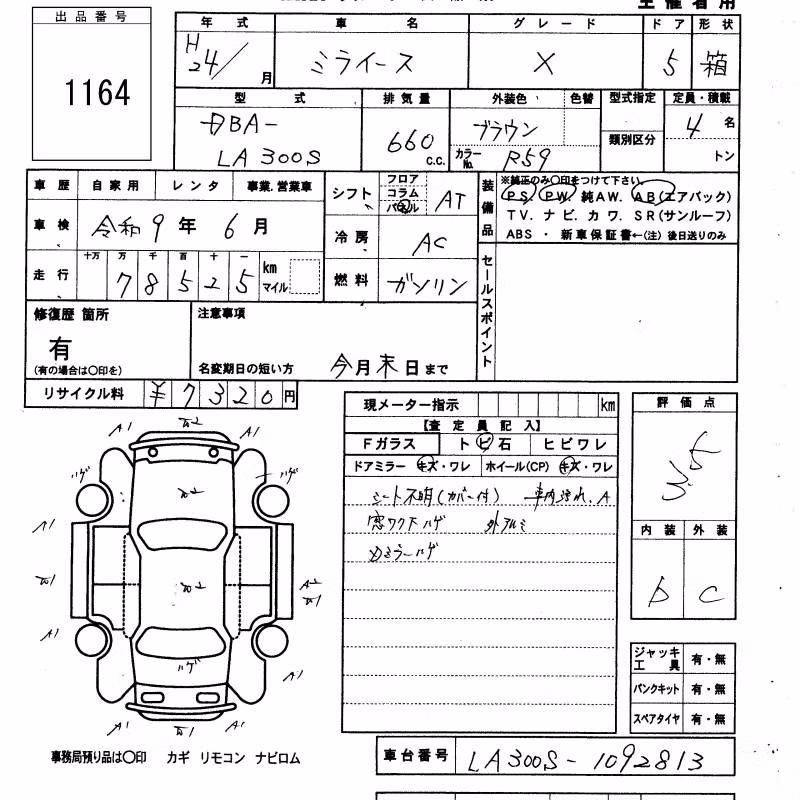 主催者用
出品番号
1164
年式 車名 グレード ドア 形状
H24/月 ミライース X 5 箱
型式 排気量 外装色 色替 型式指定 定員・積載
DBA-
LA300S
660 c.c.
ブラウン
カラーNo. R59
類別区分
4名
トン
車歴 自家用 レンタ 事業.営業車
車検 令和9年6月
走行 十万 万 千 百 十 一
78525 km マイル
シフト フロア コラム パネル AT
冷房 AC
燃料 ガソリン
装備品
※純正のみ○印をつけて下さい。
PS. PW. 純AW. AB(エアバック)
TV. ナビ. カワ. SR(サンルーフ)
ABS ・ 新車保証書←(注) 後日送りのみ
セールスポイント
修復歴 箇所
有
(有の場合は○印を)
注意事項
名変期日の短い方 今月末日まで
リサイクル料 ¥7320円
現メーター指示 km
【査定員記入】
Fガラス トビ石 ヒビワレ
ドアミラー キズ・ワレ ホイール(CP) キズ・ワレ
シート不明(カバー付) 車内汚れ.A
窓ワク下ハゲ 外アルミ
ミラーハゲ
評価点
3.5
内装 外装
D C
A1 A1
ハゲ ハゲ
A1 A1
A2
A1 A1
A1
ハゲ
A1 A1
ジャッキ工具 有・無
パンクキット 有・無
スペアタイヤ 有・無
事務局預り品は○印 カギ リモコン ナビロム
車台番号 LA300S-1092813